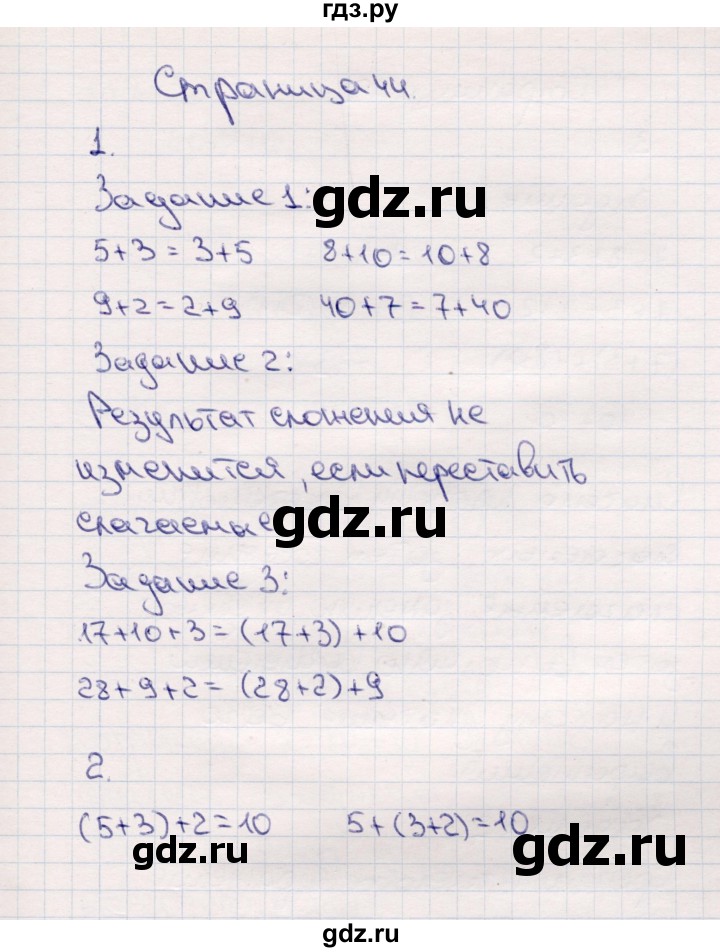 гдз.ру
Страница 44.
1.
Задание 1:
gdz.ru
5+3 = 3+5 8+10=10+8
9+2=2+9 40+7=7+40
Задание 2:
Результат сложения не
изменится, если переставить
слагаемые
gdz.ru
Задание 3:
17+10+3=(17+3)+10
28+9+2=(28+2)+9
2.
(5+3)+2=10 5+(3+2)=10
gdz.ru gdz.ru
gdz.ru